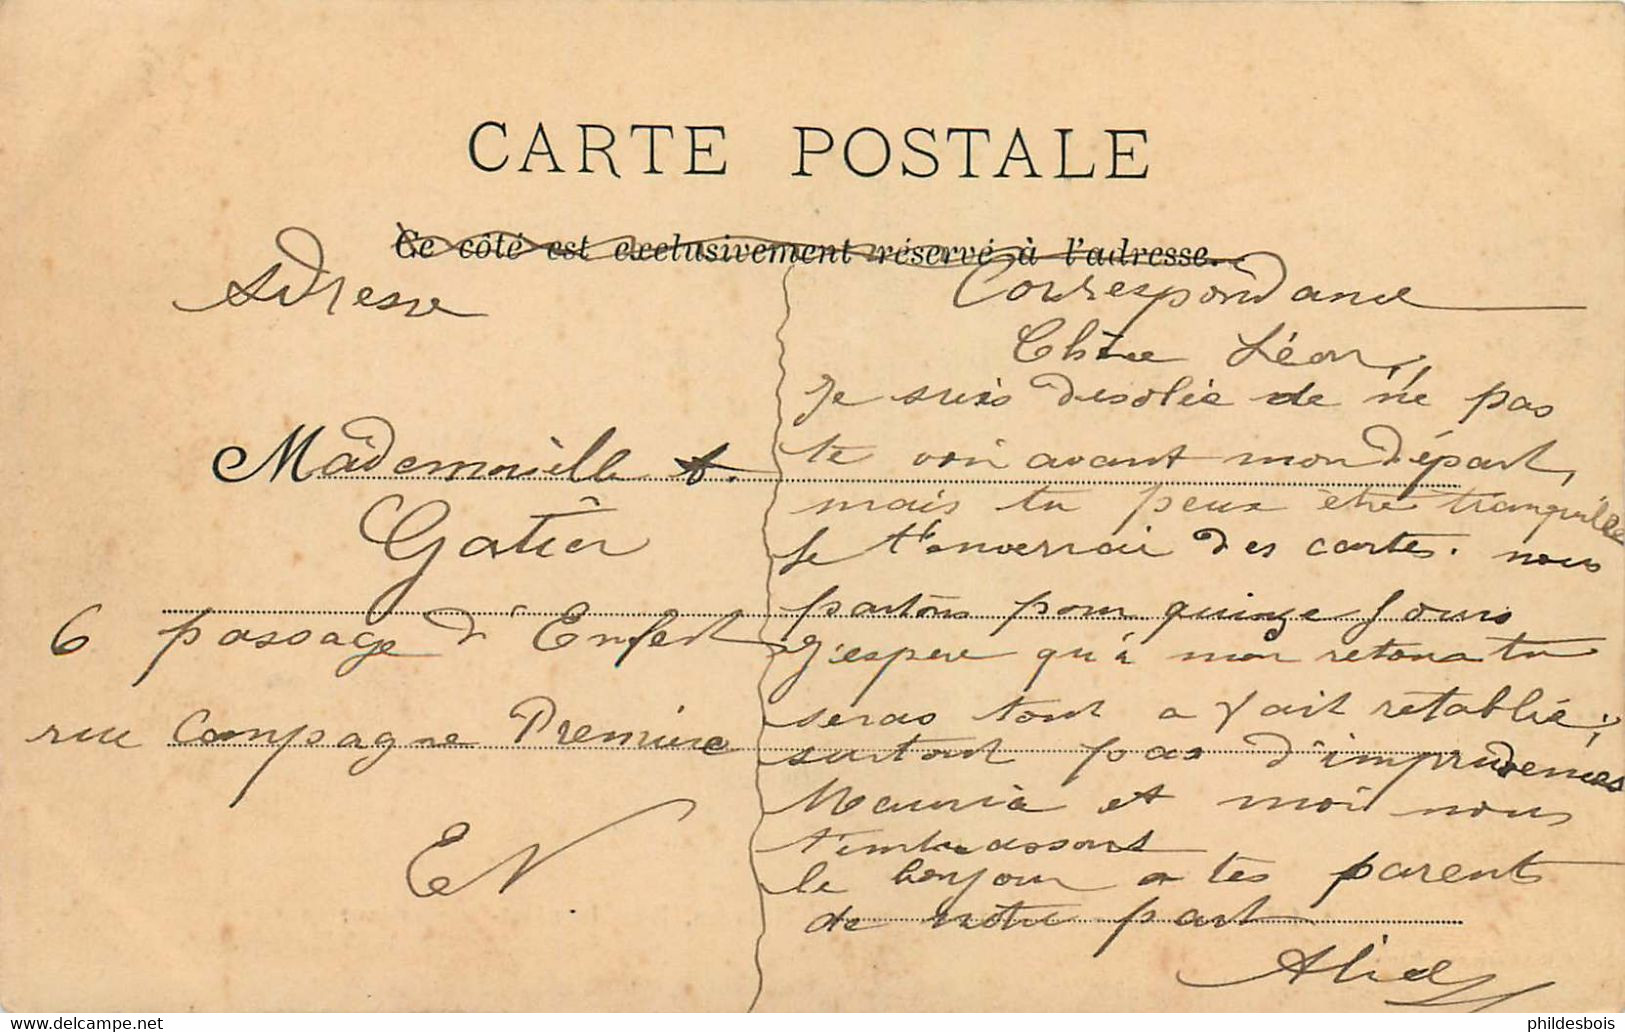 CARTE POSTALE
Ce côté est exclusivement réservé à l'adresse.
Adresse
Mademoiselle
Gatier
6 passage d'Enfert
rue Campagne Première
EV
Correspondance
Chère Léon
Je suis désolée de ne pas
te voir avant mon départ,
mais tu peux être tranquille
Je t'enverrai des cartes. nous
partons pour quinze Jours
J'espere qu'à mon retour tu
seras tout a fait retablie;
surtout pas d'imprudences
et moi nous
t'embrassons
le bonjour a tes parents
de notre part
phildesbois